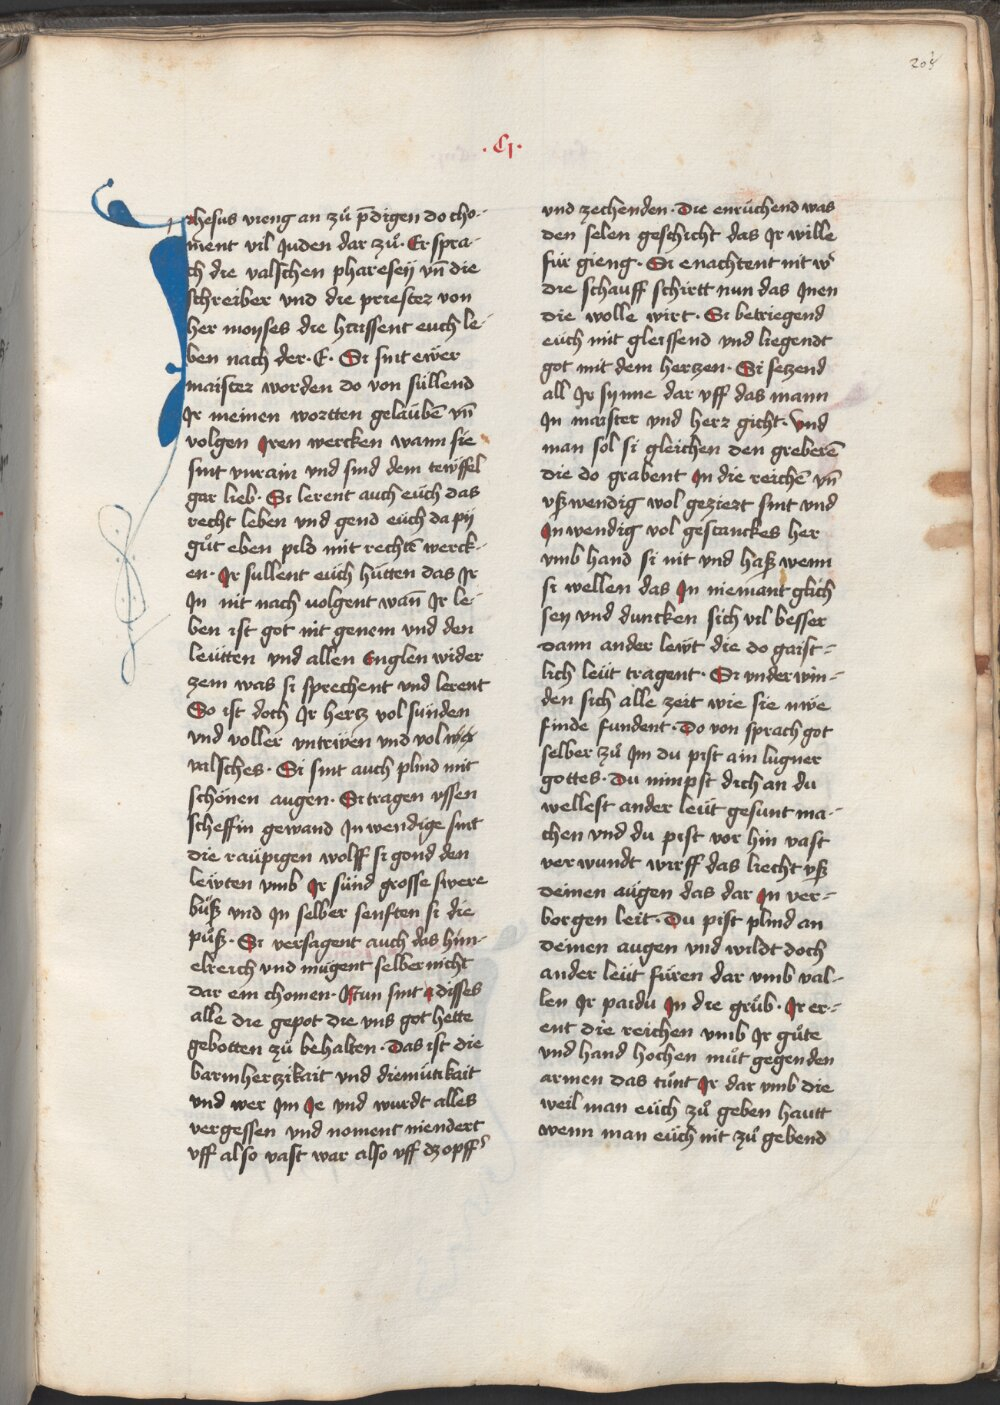 205
·CI·
Jhesus vieng an zuͦ p̄digen do cho-
ment vil Juden dar zuͦ· Er spra-
ch die valschen phareseÿ vn̄ die
schreiber vnd die priester von
her moyses die haissent euch le-
ben nach der· E· Si sint ewer
maister worden do von süllend
Jr meinen wortten gelaubē vn̄
volgen Jren wercken wann sie
sint vnrain vnd sind dem tewffel
gar lieb· Si lerent auch euch das
recht leben vnd gend euch da pÿ
guͦt eben pild mit rechtē werck-
en· Jr sullent euch hütten das Jr
Jn nit nach volgent wan̄ Jr le-
ben ist got nit genem vnd den
leütten vnd allen Englen wider
zem was si sprechent vnd lerent
So ist doch Jr hertz vol sünden
vnd voller vntriven vnd vol
valsches· Si sint auch plind mit
schönen augen· Si tragen vssen
scheffin gewand Jnwendige sint
die raüpigen wolff si gond den
lewten vmb Jr sünd grosse swere
buͦß vnd Jn selber senften si die
puͦß· Si versagent auch das him-
elreich vnd mügent selber nicht
dar ein chomen· Nun sint disses
alle die gepot die vns got hette
gebotten zuͦ behalten· Das ist die
barmhertzikait vnd diemütikait
vnd wer Jm Je vnd wurdt alles
vergessen vnd noment niendert
vff also vast war also vff dz opff
vnd zechenden· Die enrüchend was
den selen geschicht das Jr wille
für gieng· Si enachtent nit
die schauff schirtt nun das Jnen
die wolle wirt· Si betriegend
euch mit gleissend vnd liegendt
got mit dem hertzen· Si setzend
all Jr synne dar vff das mann
Jn maister vnd herr gicht· Vnd
man sol si gleichen den greberē
die do grabent Jn die reichē vn̄
vßwendig wol geziert sint vnd
Jnwendig vol gestanckes her
vmb hand si nit vnd haß wenn
si wellen das Jn niemant glich
sey vnd duncken sich vil besser
dann ander lewt die do gaist-
lich leüt tragent· Si vnderwin-
den sich alle zeit wie sie nwe
finde fundent· Do von sprach got
selber zuͦ Jm du pist ain lugner
gottes· Du nimpst dich an du
wellest ander leüt gesunt ma-
chen vnd du pist vor hin vast
verwundt wirff das liecht vß
deinen augen das dar Jn ver-
borgen leit· Du pist plind an
deinen augen vnd wildt doch
ander leüt füren dar vmb val-
len Jr paidu Jn die grüb· Jr er-
ent die reichen vmb Jr guͦte
vnd hand hochen muͦt gegen den
armen das tuͦnt Jr dar vmb die
weil man euch zuͦ geben hautt
wenn man euch nit zuͦ gebend